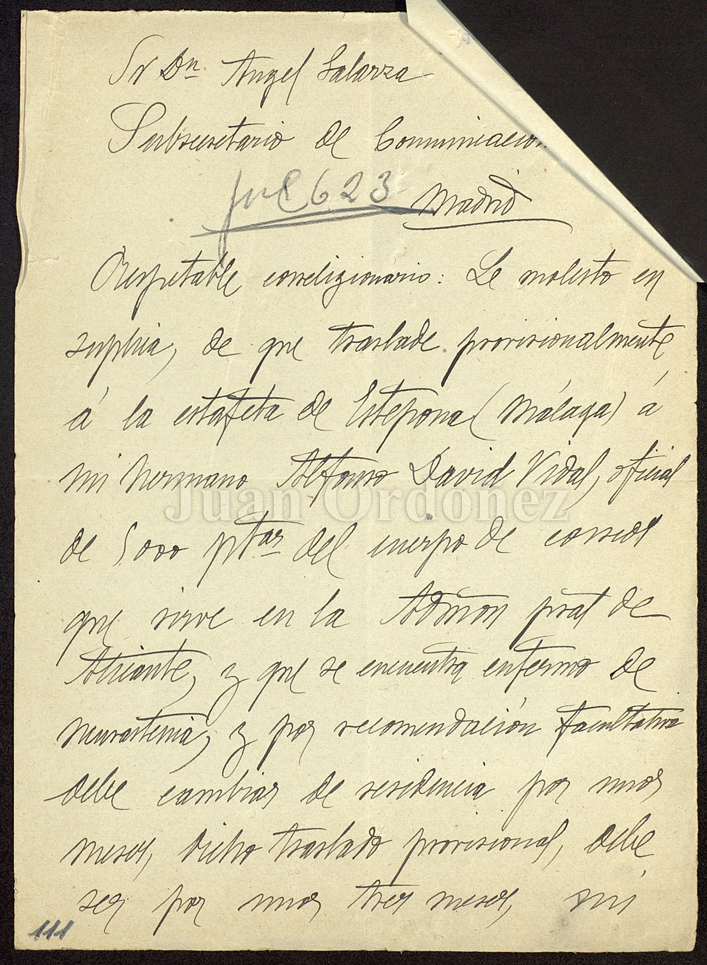 Sr Dn Angel Galarza
Subsecretario de Comunicacion
623
Madrid
Respetable correligionario: Le molesto en
suplica, de que traslade provisionalmente
á la estafeta de Estepona (Málaga) á
mi hermano Alfonso David Vidal, oficial
Juan Ordoñez
de 5000 ptas del cuerpo de correos
que sirve en la Admon pral de
Alicante, y que se encuentra enfermo de
neurastenia, y por recomendación facultativa
debe cambiar de residencia por unos
meses, dicho traslado provisional, debe
ser por unos tres meses, sin
111